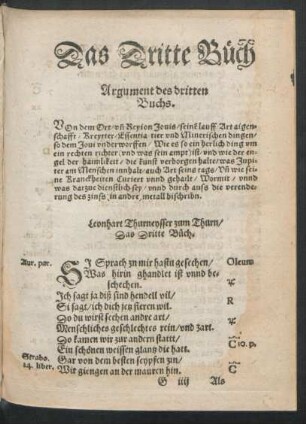 Das Dritte Büch
Argument des dritten
Buchs.
VOn dem Ort/vñ Rexion Jouis/seinē lauff Art aigen-
schafft/ Kreyter/Essentia tier vnd Minerischen dingen/
so dem Joui vnderworffen/ Wie es so ein herlich ding vm
ein rechten richter vnd was sein ampt ist/vnd wie der en-
gel der häimlikeit/ die künst verborgen halte/was Jupi-
ter am Menschen innhalt/auch Der seins tags/Vñ wie sei-
ne Kranckheiten Curiert vnnd gehailt/ Warmit/ vnd
was darzue dienstlich sey/ vnnd durch auß die verende-
rung des zinß/in andre metall bischribn.
Leonhart Thurneysser zum Thurn/
Das Dritte Büch.
SI Sprach zu mir hastu gesehen/ Oleum
Aur. por.
Was hirin ghandlet ist vnnd be-
schechen.
Ich sagt ja diß sind hendel vil/
R
Si sagt/ich dich jez füeren wil.
Do du wirst sechen andre art/
Menschliches geschlechtes rein/vnd zart.
Do kamen wir zur andern statt/
Ein schönen weissen glantz die hatt. C io. p.
Strabo.
14. liber.
Gar von dem besten seypfen zin/
Wir giengen an der mauren hin. C
G iiij Als